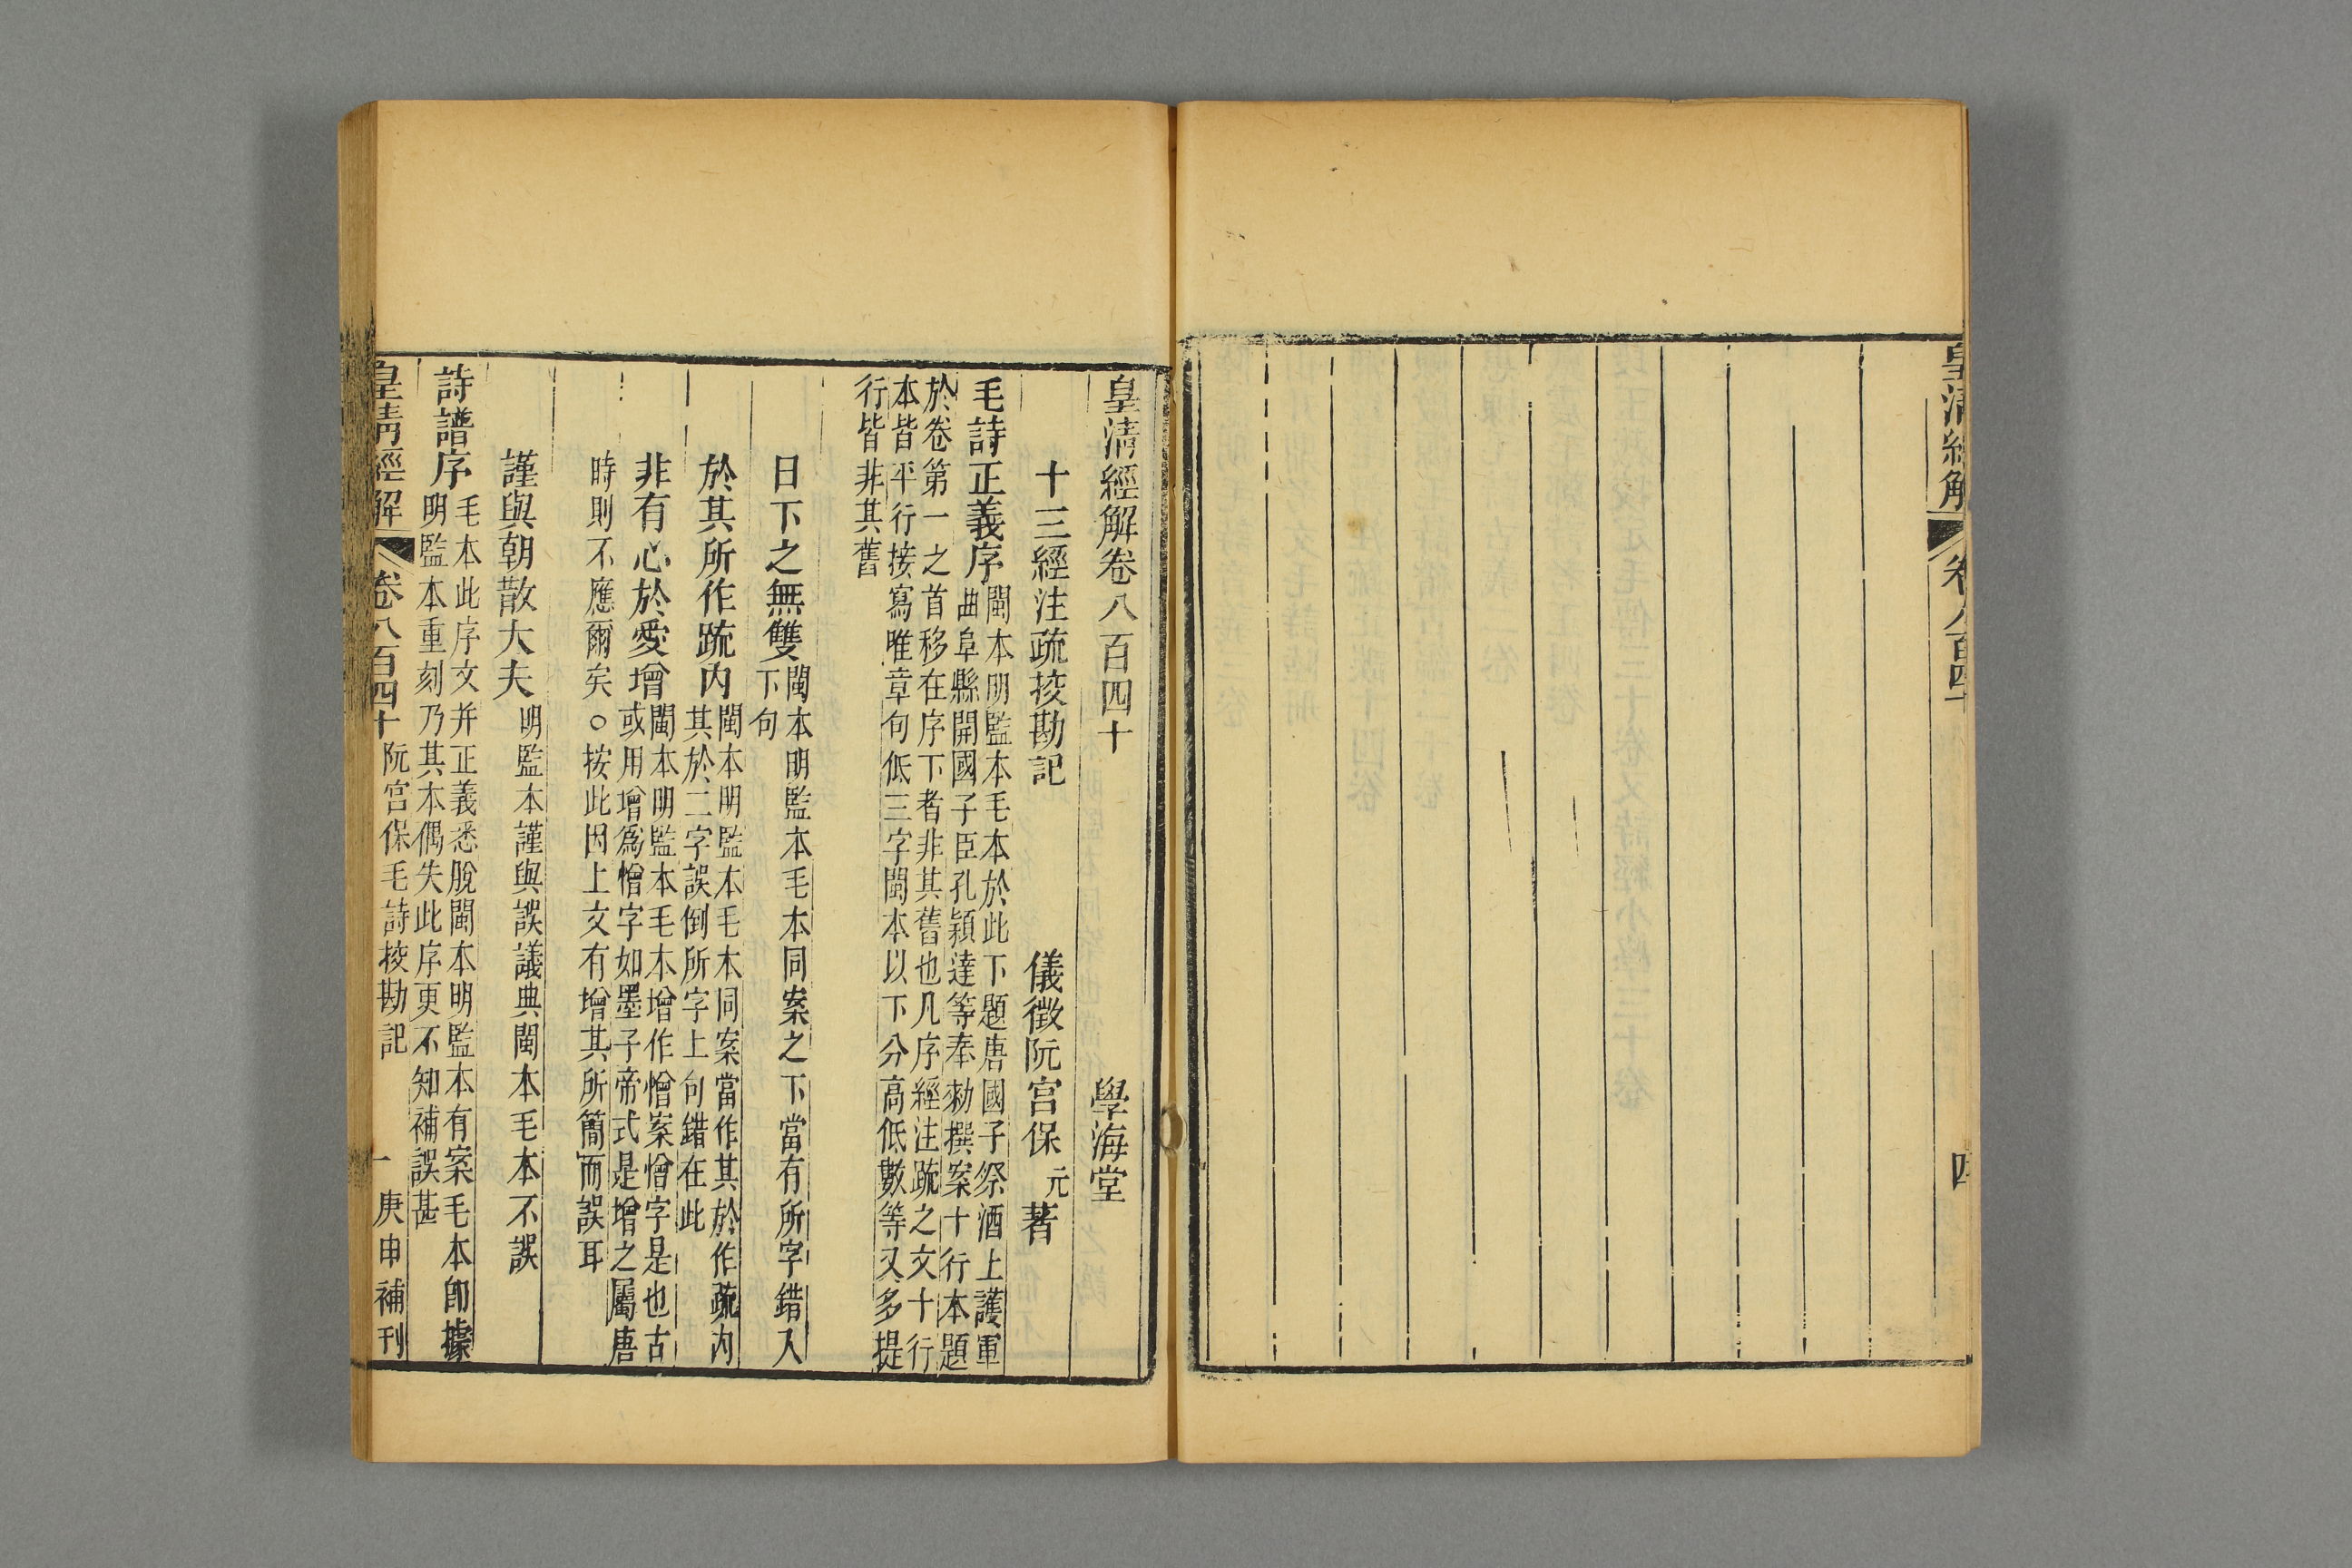 皇清經解
卷八百四十
四
皇清經解卷八百四十
學海堂
十三經注疏挍勘記
儀徵阮宮保元著
毛詩正義序
閩本明監本毛本於此下題唐國子祭酒上護軍
曲阜縣開國子臣孔穎達等奉勑撰案十行本題
於卷第一之首移在序下者非其舊也凡序經注疏之文十行
本皆平行接寫唯章句低三字閩本以下分高低數等又多提
行皆非其舊
日下之無雙
閩本明監本毛本同案之下當有所字錯入
下句
於其所作疏内
閩本明監本毛本同案當作其於作疏内
其於二字誤倒所字上句錯在此
非有心於愛增
閩本明監本毛本增作憎案憎字是也古
或用增爲憎字如墨子帝式是增之屬唐
時則不應爾矣○按此因上文有增其所簡而誤耳
謹與朝散大夫
明監本謹與誤議典閩本毛本不誤
詩譜序
毛本此序文并正義悉脫閩本明監本有案毛本卽據
明監本重刻乃其本偶失此序更不知補誤甚
皇清經解
卷八百四十
阮宮保毛詩挍勘記
一
庚申補刊